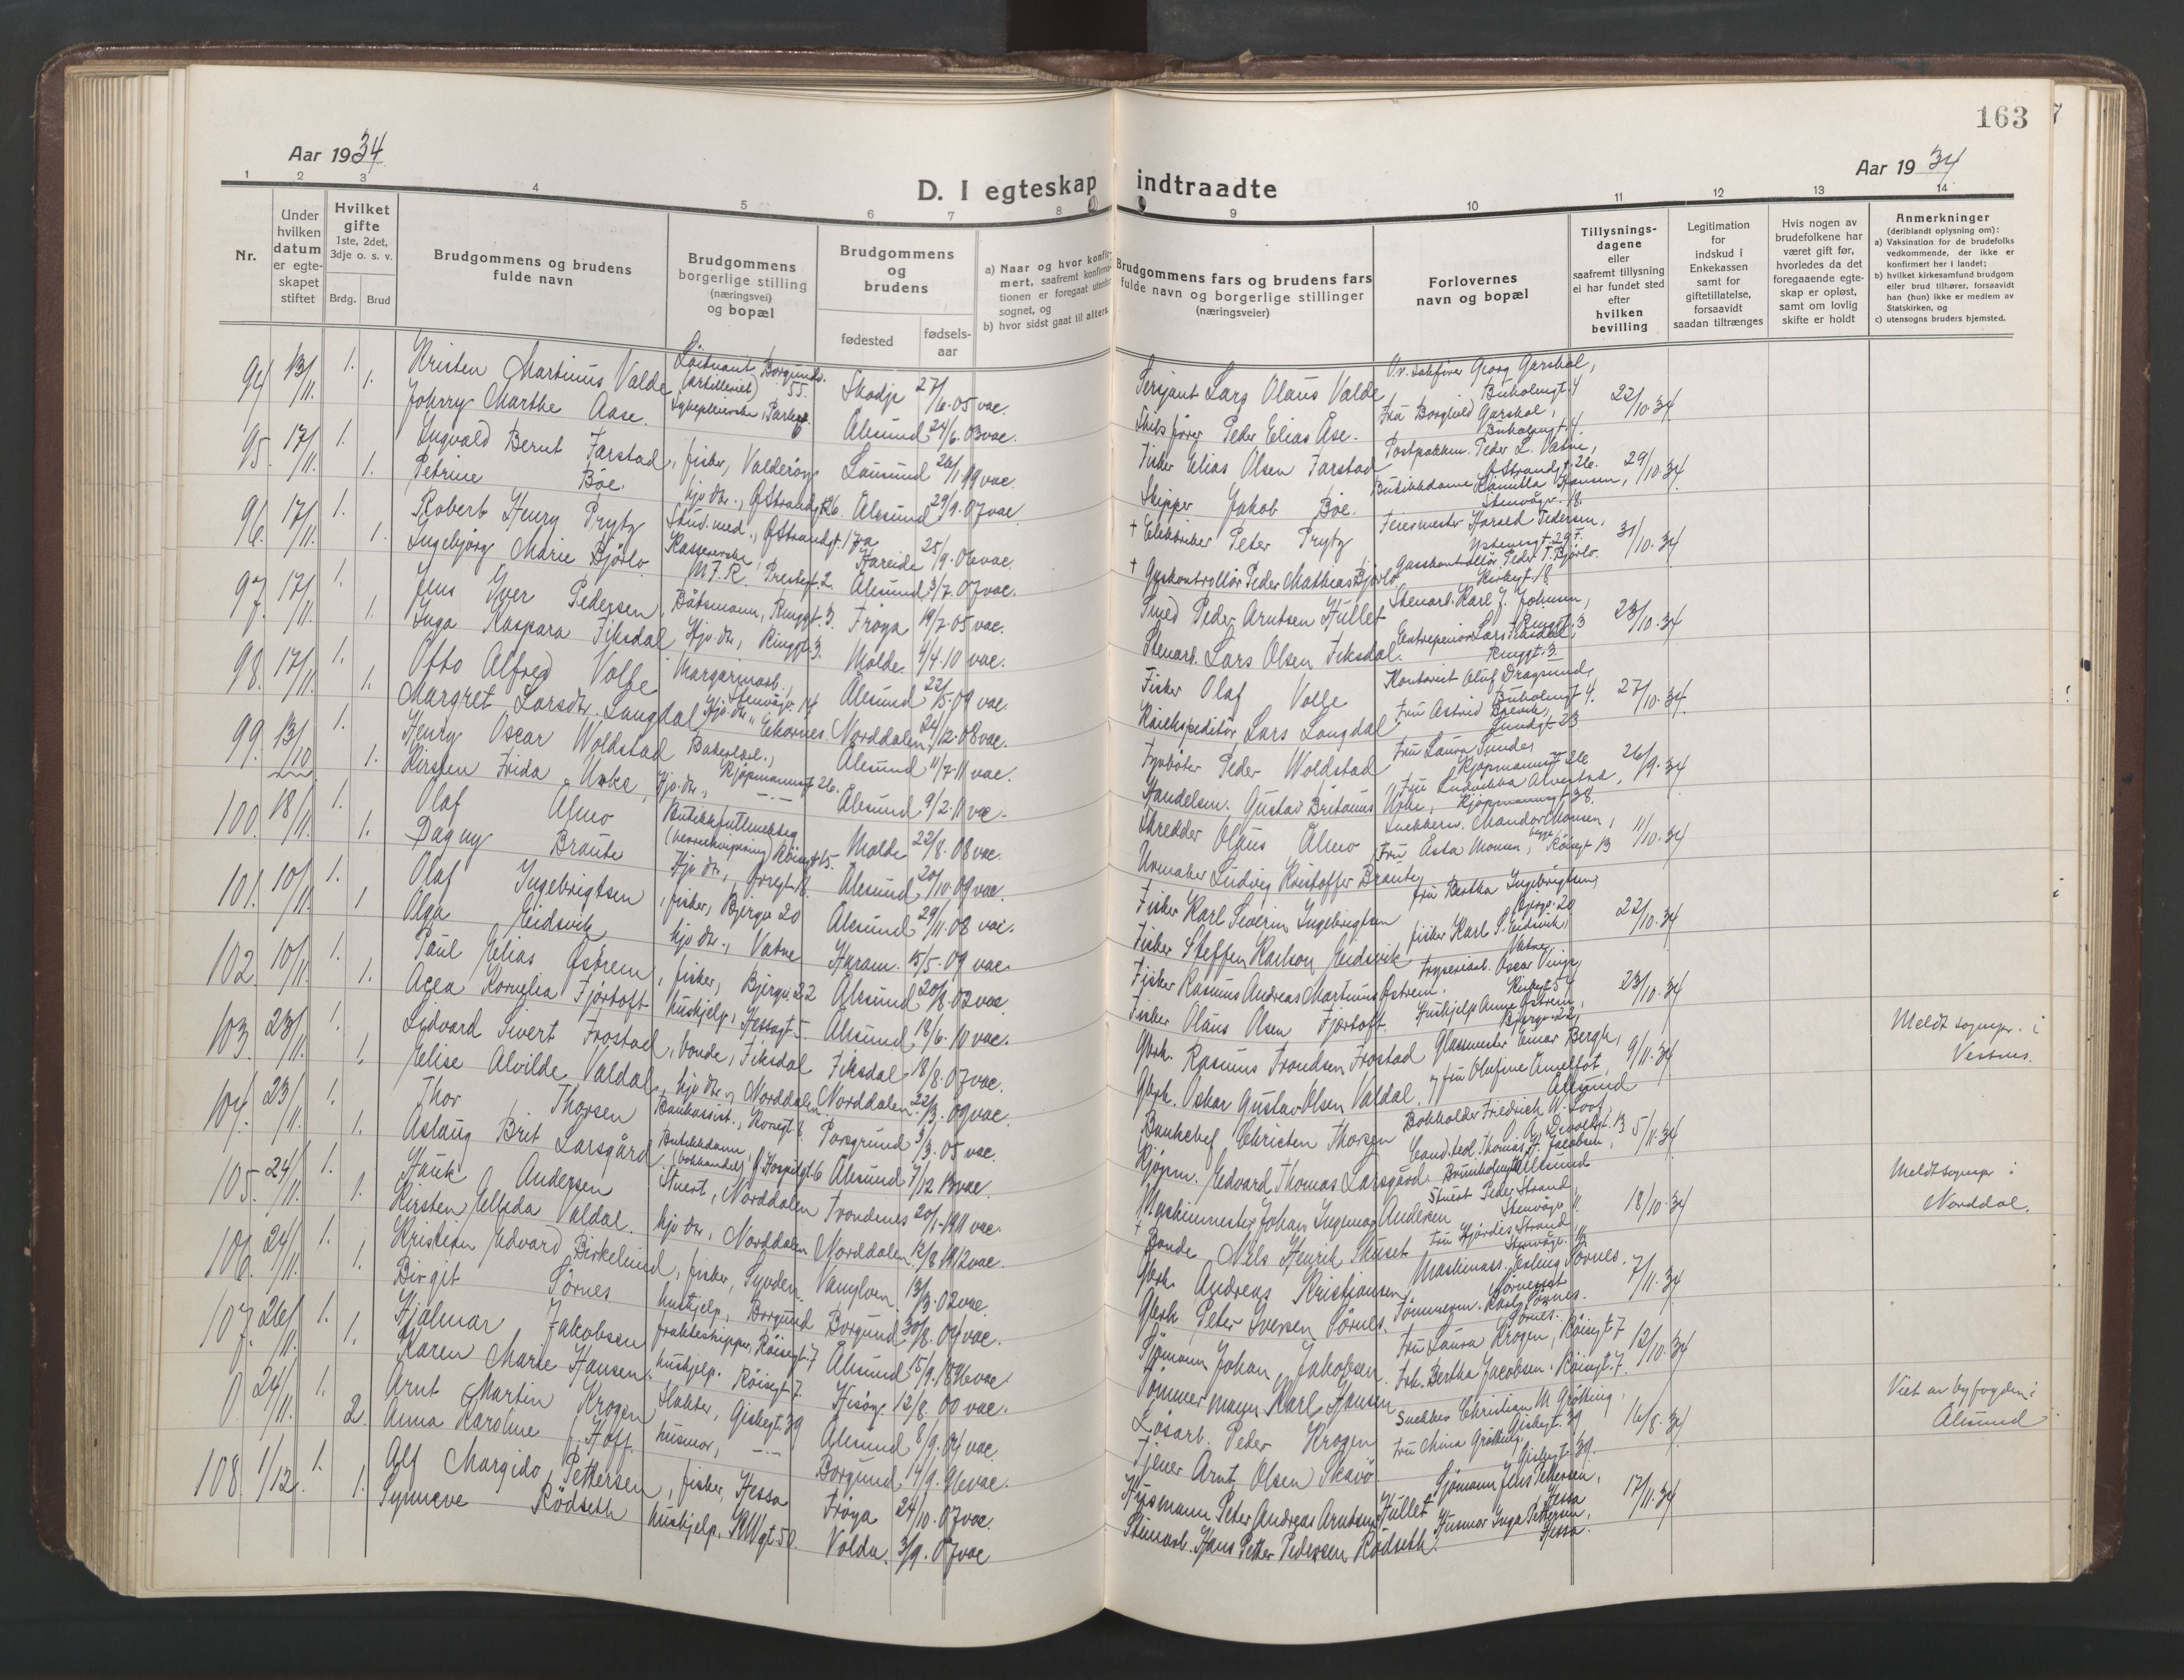 163
Aar 1934
Aar 1934
D. I egteskap indtraadte
1 2 3 4 5 6 7 8 9 10 11 12 13 14
Nr.
Under hvilken datum er egteskapet stiftet
Hvilket gifte 1ste, 2det, 3dje o. s. v.
Brdg. Brud
Brudgommens og brudens fulde navn
Brudgommens borgerlige stilling (næringsvei) og bopæl
Brudgommens og brudens
fødested
fødsels-aar
a) Naar og hvor konfirmert, saafremt konfirmationen er foregaat utenfor sognet, og
b) hvor sidst gaat til alters.
Brudgommens fars og brudens fars fulde navn og borgerlige stillinger (næringsveier)
Forlovernes navn og bopæl
Tillysningsdagene eller saafremt tillysning ei har fundet sted efter hvilken bevilling
Legitimation for indskud i Enkekassen samt for giftetillatelse, forsaavidt saadan tiltrænges
Hvis nogen av brudefolkene har været gift før, hvorledes da det foregaaende egteskap er opløst, samt om lovlig skifte er holdt
Anmerkninger (deriblandt oplysning om):
a) Vaksination for de brudefolks vedkommende, der ikke er konfirmert her i landet;
b) hvilket kirkesamfund brudgom eller brud tilhører, forsaavidt han (hun) ikke er medlem av Statskirken, og
c) utensogns bruders hjemsted.
94 13/11. 1. Kristen Martinus Valde Löitnant (artilleriet) Borgundv. 55. Skodje 27/6.05 vac. Sersjant Lars Olaus Valde O.r. sakfører Georg Garshol, Buholmgt. 4 22/10.34
1. Johnny Marthe Aase. Sykepleierske, Parkgt. 6 Ålesund 24/6.03 vac. Skibsfører Peder Elias Åse. Fru Borghild Garshol, Buholmgt. 4.
95 17/11. 1. Ingvald Bernt Farstad, fisker, Valderöy Fisker Elias Olsen Farstad Peder L. Vatne, Ø Strandgt. 26. 29/10.34
1. Petrine Böe. hjv. dtr., Ø Strandgt. 26. Ålesund 29/1.07 vac. Skipper Jakob Böe. Butikkdame Kamilla Hansen, Stenvågv. 18.
96. 17/11. 1. Robert Henry Prytz Stud. med., Ø Strandgt. 17a Hareide 25/9.06 vac. + Elektriker Peter Prytz Feiermester Harald Pedersen, 31/10.34
1. Ingebjörg Marie Björlo Kassererske, M.F.R. Prestegt. 2. Ålesund 3/7.07 vac. + Gasskontrollör Peder Mathias Björlo Gasskontrollör Peder T. Björlo. Kirkegt. 18
97. 17/11. 1. Jens Yver Pedersen Båtsmann, Ringgt. 3. Fröya 19/7.05 vac. Smed Peder Arntsen Hullet Stenarb. Karl J. Johnsen, Ringgt. 3 23/10.34
1. Inga Kaspara Fiksdal Hjv. dtr., Ringgt. 3. Molde 4/4.10 vac. Stenarb. Lars Olsen Fiksdal. Entreprenör Lars Fiksdal, Ringgt. 3.
98. 17/11. 1. Otto Alfred Volle Margarinarb., Stenvågv. 14 Ålesund 22/5.09 vac. Fisker Olaf Volle Kontorist Oluf Dragsund, Buholmgt. 4. 27/10.34
1. Margret Larsdtr. Langdal, Hjv. dtr., Ekornes. Norddalen 24/12.08 vac. Lars Langdal Fru Astrid Brevik, Lundgt. 23
99. 13/10 1. Henry Oscar Woldstad Ålesund 11/7.11 vac. Fyrböter Peder Woldstad Fru Laura Sunde, Kjöpmannsgt. 26 26/9.34
1. Kirsten Frida Urke, Hjv. dtr., Kjöpmannsgt. 26. Ålesund 9/2.11 vac. Handelsm. Gustav Britanus Urke, Fru Ludvikka Alvestad, Kjöpmannsgt. 38.
100. 18/11. 1. Olaf Almo Butikkfullmektig (herreekvipering) Röisgt. 15. Molde 22/8.08 vac. Skredder Olaus Almo Snekkerm. Mandor Monsen, 11/10.34
1. Dagny Braute Hjv. dtr., Ålesund 20/10.09 vac. Urmaker Ludvig Kristoffer Braute Fru Asta Monsen, begge Röisgt. 13
101. 10/11. 1. Olaf Ingebrigtsen, fisker, Bjergv. 20 Ålesund 29/11.08 vac. Fisker Karl Severin Ingebrigtsen Fru Bertha Ingebrigtsen, Bjergv. 20 22/10.34
1 Olga Eidsvik hjv. dtr., Vatne Haram. 15/5.09 vac. Fisker Steffen Karlson Eidsvik fisker Karl S. Eidsvik, Vatne
102 10/11. 1. Paul Elias Östrem, fisker, Bjergv. 22 Ålesund 20/8.02 vac. Fisker Rasmus Andreas Martinus Östrem. Oscar Vinje, Kirkegt. 54 23/10.34
1. Agea Kornelia Fjörtoft hushjelp, Hessagt. 5. Ålesund 18/6.10 vac. Fisker Olaus Olsen Fjørtoft. Hushjelp Anna Östrem, Bjergv. 22,
103. 23/11. 1. Sidvard Sivert Frostad, bonde, Fiksdal Fiksdal 18/8.07 vac. Gbrk. Rasmus Trondsen Frostad Glassmester Einar Bergh, 9/11.34 Meldt sognepr. i Vestnes.
1. Elise Alvilde Valdal, hjv. dtr., Norddalen. Norddalen 22/3.09 vac. Gbrk. Oskar Gustav Olsen Valdal. og fru Olufine Amelfot, Ålesund
104. 23/11. 1. Thor Thorsen Bankassist., Korsgt. 6 Porsgrund 3/3.05 vac. Banksjef Christen Thorsen Bokholder Friedrich W. Loof, O. A. Devoldgt. 13 5/11.34
1. Aslaug Brit Larsgård Butikkdame (bokhandel) Ö Hospitalgt. 6 Ålesund 7/12.13 vac. Kjöpm. Edvard Thomas Larsgård. Cand. teol. Thomas F. Jacobsen,
105. 24/11. 1. Hauk Andersen Stuert, Norddalen Trondenes 20/1.1911 vac. Maskinmester Johan Ingemar Andersen Stuert Peder Strand Stenvågv. 11. 18/10.34 Meldt sognepr. i Norddal.
1. Kirsten Elleda Valdal. hjv. dtr., Norddalen Norddalen 12/8.1912 vac. + Bonde Nils Henrik Fru Hjördis Strand Stenvågv. 11
106. 24/11. 1. Kristian Edvard Birkelund, fisker, Syvden. Vanylven 13/3.02 vac. Gbrk. Andreas Kristiansen Maskinass. Esling Sörnes. 7/11.34
1. Birgit Sörnes hushjelp, Borgund Borgund 30/8.04 vac. Gbrk Peter Iversen Sörnes. Tömmerm. Karl Sörnes. Sörnes.
107. 26/11. 1. Hjalmar Jakobsen fraktskipper, Röisgt. 7 Ålesund 15/9.1876 vac Sjömann Johan Jakobsen Fru Laura Krogen, Röisgt. 7 12/10.34
1. Karen Marie Hansen. hushjelp. Röisgt. 7. Hisöy 12/8.00 vac. Tömmermann Karl Hansen Frk. Bertha Jacobsen, Röisgt. 7.
0. 24/11. 1. Arnt Martin Krogen Slakter, Giskegt. 39 Ålesund 8/9.04 vac. Lösarb. Peder Krogen Snekker Christian M Grötting, Giskegt. 39 16/8.34 Viet av byfogden i Ålesund
2. Anna Karoline f. Hoff. husmor, -"- Borgund 14/9.96 vac. Tjener Arnt Olsen Fru Mina Grötting, Giskegt. 39.
108. 1/12. 1. Alf Margido Pettersen, fisker, Hessa Fröya 24/10.07 vac. Husmann Peter Andreas Arntsen Hullet Sjömann Jens Pettersen, Hessa 17/11.34
1. Synneve Rödseth hushjelp, KWgt. 50. Volda. 3/9.07 vac Stenarb. Hans Petter Pedersen Rödseth. Husmor Inga Pettersen, Hessa.